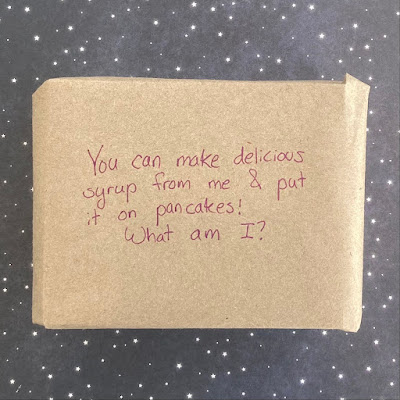 You can make delicious
syrup from me & put
it on pancakes!
What am I?